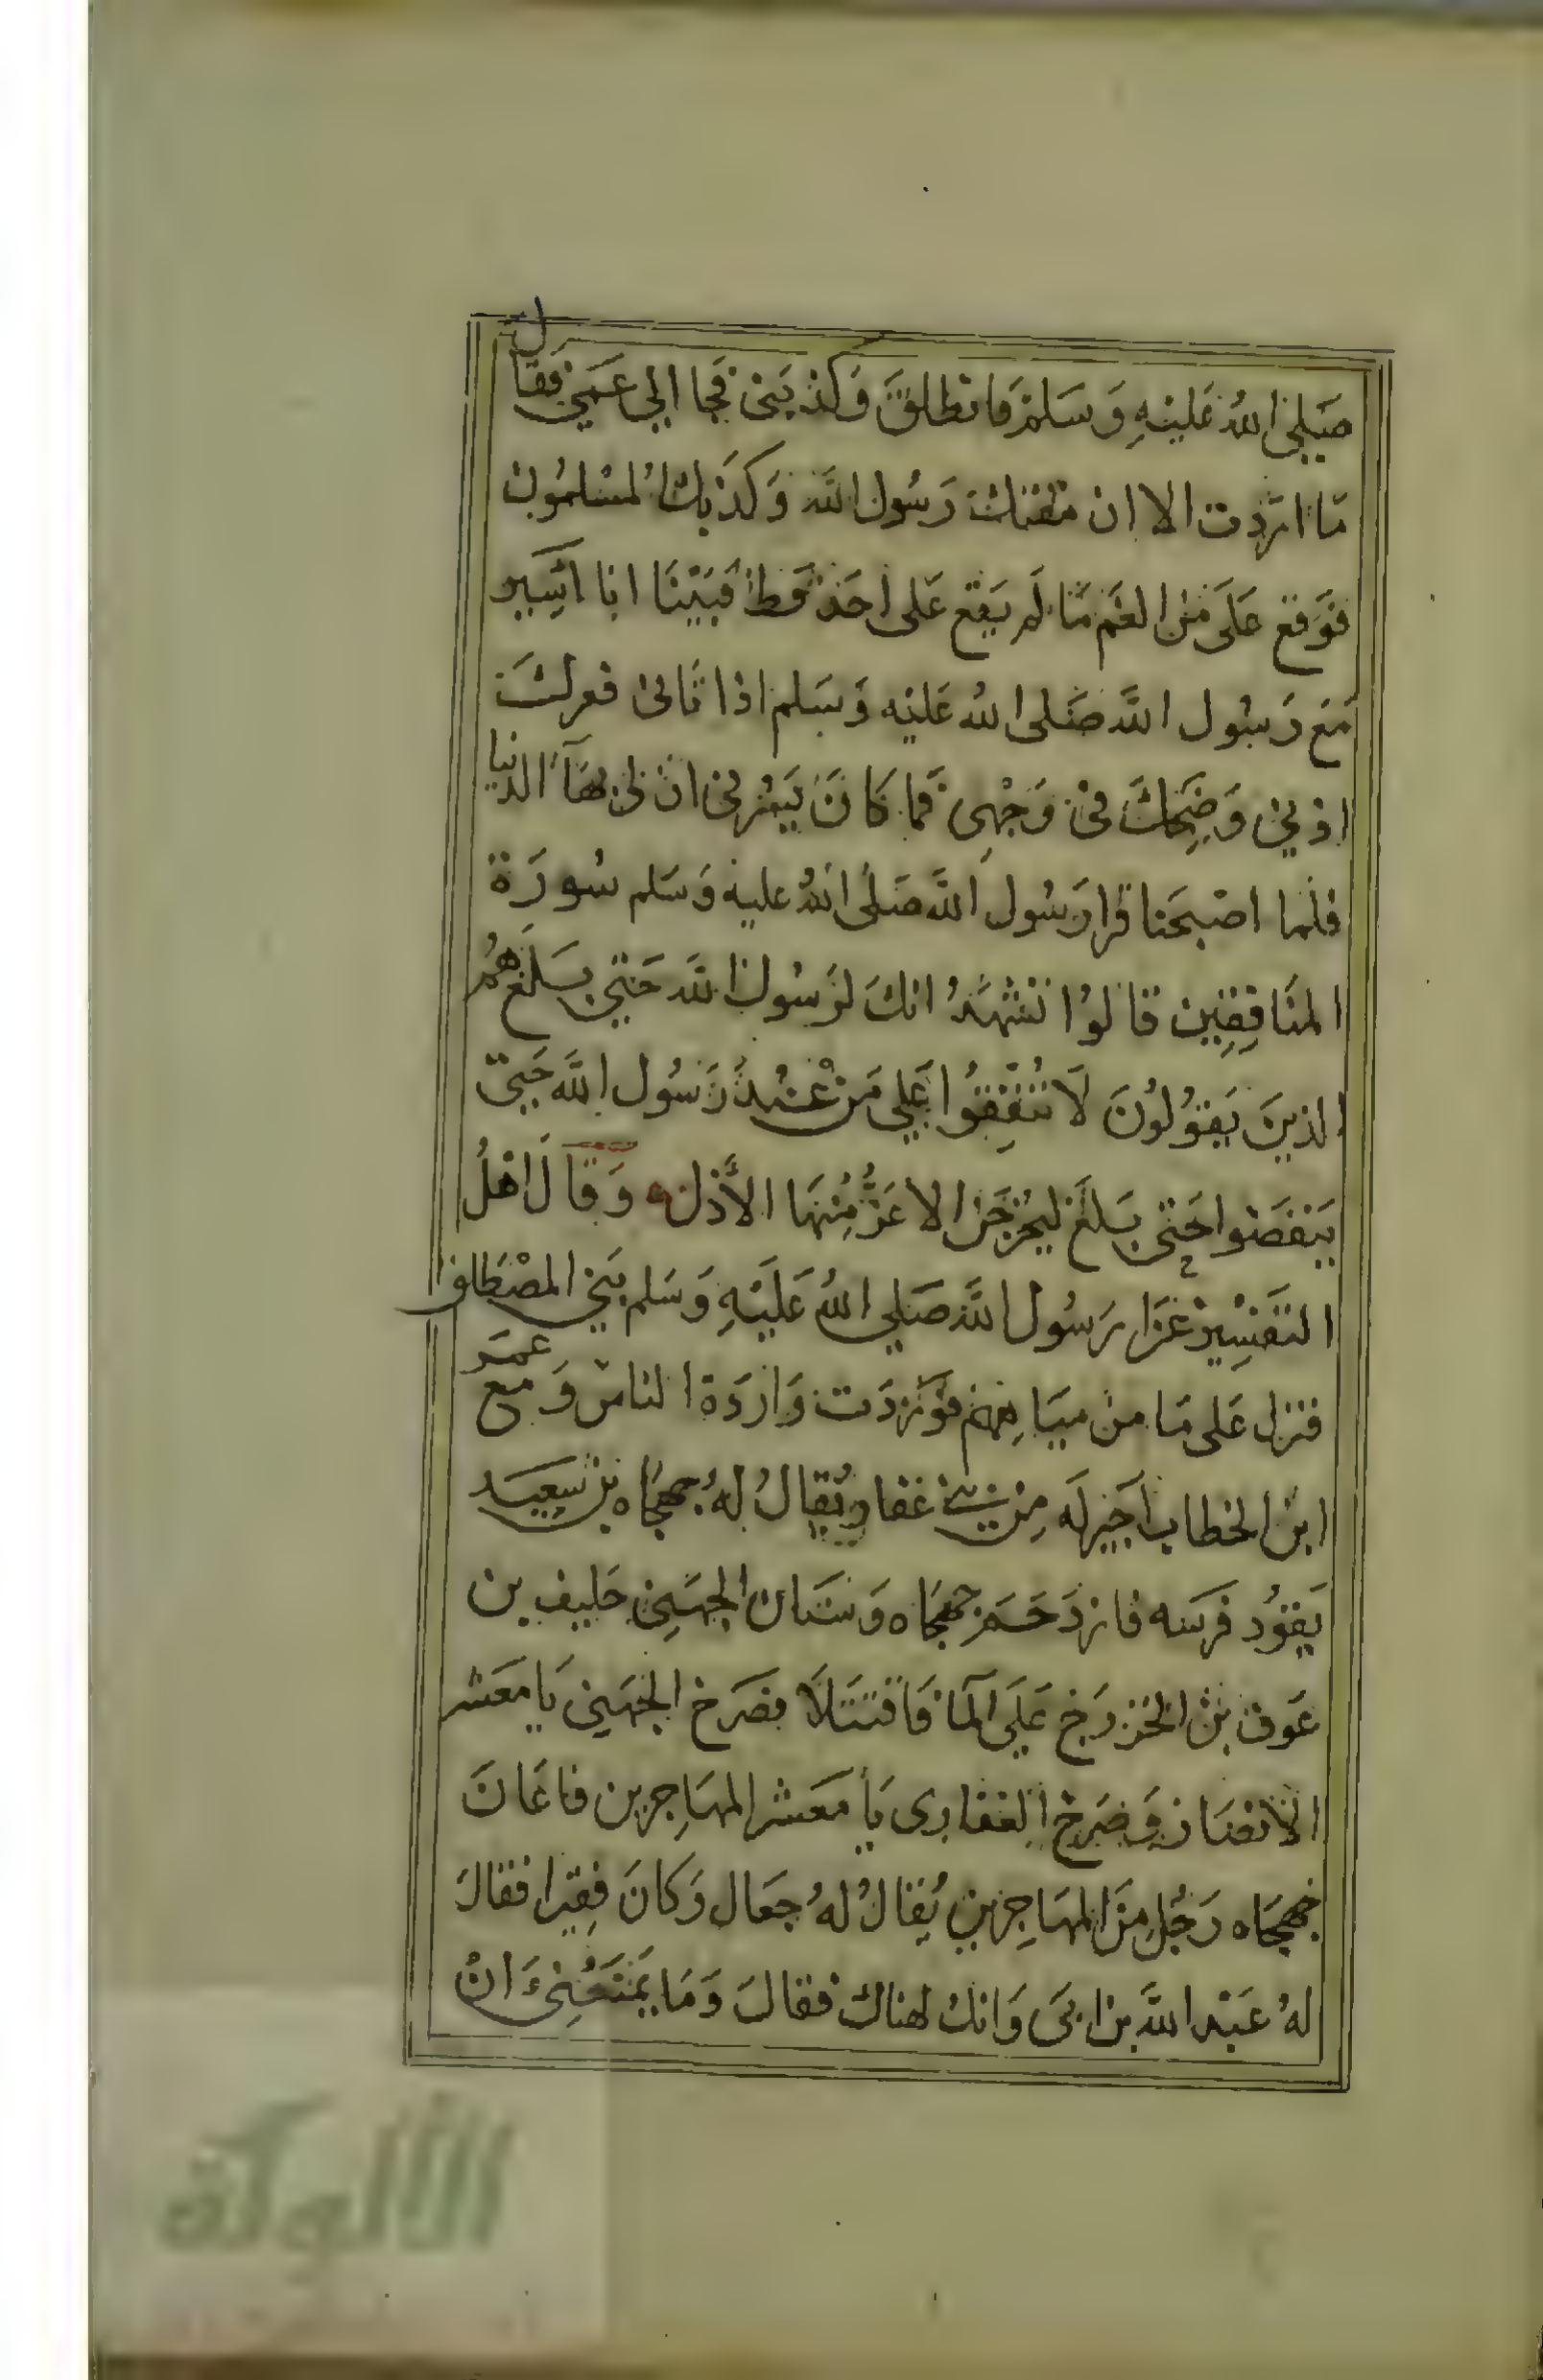 صَلي اللهُ عَليْهِ وَسَلمْ فانطلقَ وَكذبَنى فجا الي عَمي فقال
مَا ارَدت الا ان مقتك رَسُول الله وَكذبك المسْلمُون
فوَقع عَلىَ مْن الغَم مَا لم يَقع عَلى احَد قط فبَيْنَا انا اسِير
مَع رَسُول الله صَلى الله عَليْه وَسَلم اذا تَانى فعرك
اذني وَضَحِكَ فى وَجْهى فما كَانَ يَسُرني ان لى بهَا الدنيا
فلما اصْبحَنا قرا رَسُول الله صَلى اللهُ عليه وَسَلم سُورَة
المنَافِقِين قالوُا نَشْهَدُ انكَ لرَسُول الله حَتي بَسَلغ هُمُ
الذينَ يَقوُلوُنَ لاَ تُنْفِقوُا عَلي مَنْ عنْدَ رَسُول الله حَتي
يَنفَضوا حَتى بَسَلغ ليُخْرجَن الاعَزُّ مِنْهَا الأذل وَقالَ اهْلُ
التفَسِير غَزَا رَسُول الله صَلي اللهُ عَليْهِ وَسَلم بَني المصْطلق
فنزل عَلى مَا من ميَاهِهم فوَرَدَت وَاردَة الناس وَمع عمَر
ابن الخطاب اَجير لَه مِن بَني غفار يُقالُ لهُ جهجَاه بن سَعِيد
يَقوُد فرَسه فازدَحَم جهجَاه وَسنَان الجهَني حَليف بن
عَوف بن الخزرَج عَلَي الما فَاقتتَلاَ فصَرَخ الجهَني يَا مَعَشر
الأنصَار وَصَرَخ الغفارى يَا مَعَشر المهَاجرين فاعَانَ
جهجَاه رَجُل مِنَ المهَاجرين يُقالُ لهُ جعَال وَكانَ فقِيرا فقالَ
لهُ عَبْد الله بن ابىَ وَانك لهناك فقالَ وَمَا يَمنَعُنىَ ان
الألوكة